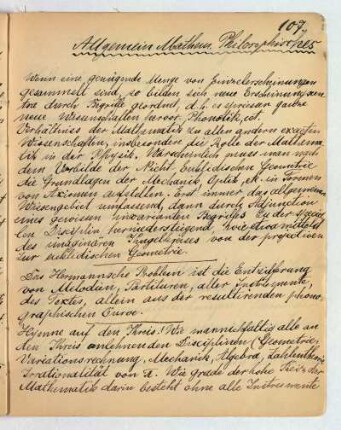 107.
Allgemein Mathem. Philosophisches
Wenn eine genügende Menge von Einzelerscheinungen
gesammelt sind, so bilden sich neue Erscheinungen
durch Begriffe geordnet, d. h. es spriesen ganze
neue Wissenschaften hervor. Phonetik, etc.
Verhältniss der Mathematik zu allen andern exacten
Wissenschaften, insbesondere die Rolle der Mathema-
tik in der Physik. Warscheinlich muss man nach
dem Vorbilde der Nicht Euklidischen Geometrie
die Grundlagen der Mechanik, Optik, etc. in Formen
von Axiomen aufstellen. Erst immer das allgemeine
Wissensgebiet umfassend, dann durch Adjunction
eines gewissen invarianten Begriffes zu der speciel-
len Disciplin herniedersteigend, wie etwa mittelst
des imaginären Kugelkreises von der projectiven
zur euklidischen Geometrie.
Das Hermannsche Problem ist die Entzifferung
von Melodien, Partituren, aller Instrumente,
des Textes, allein aus der resultirenden phono-
graphischen Curve.
Hymne auf den Kreis! Wie mannichfaltig alle an
den Kreis anlehnenden Disciplinen (Geometrie,
Variationsrechnung, Mechanik, Algebra, Zahlentheorie
Irrationalität von π. Wie grade der hohe Reiz der
Mathematik darin besteht ohne alle Instrumente